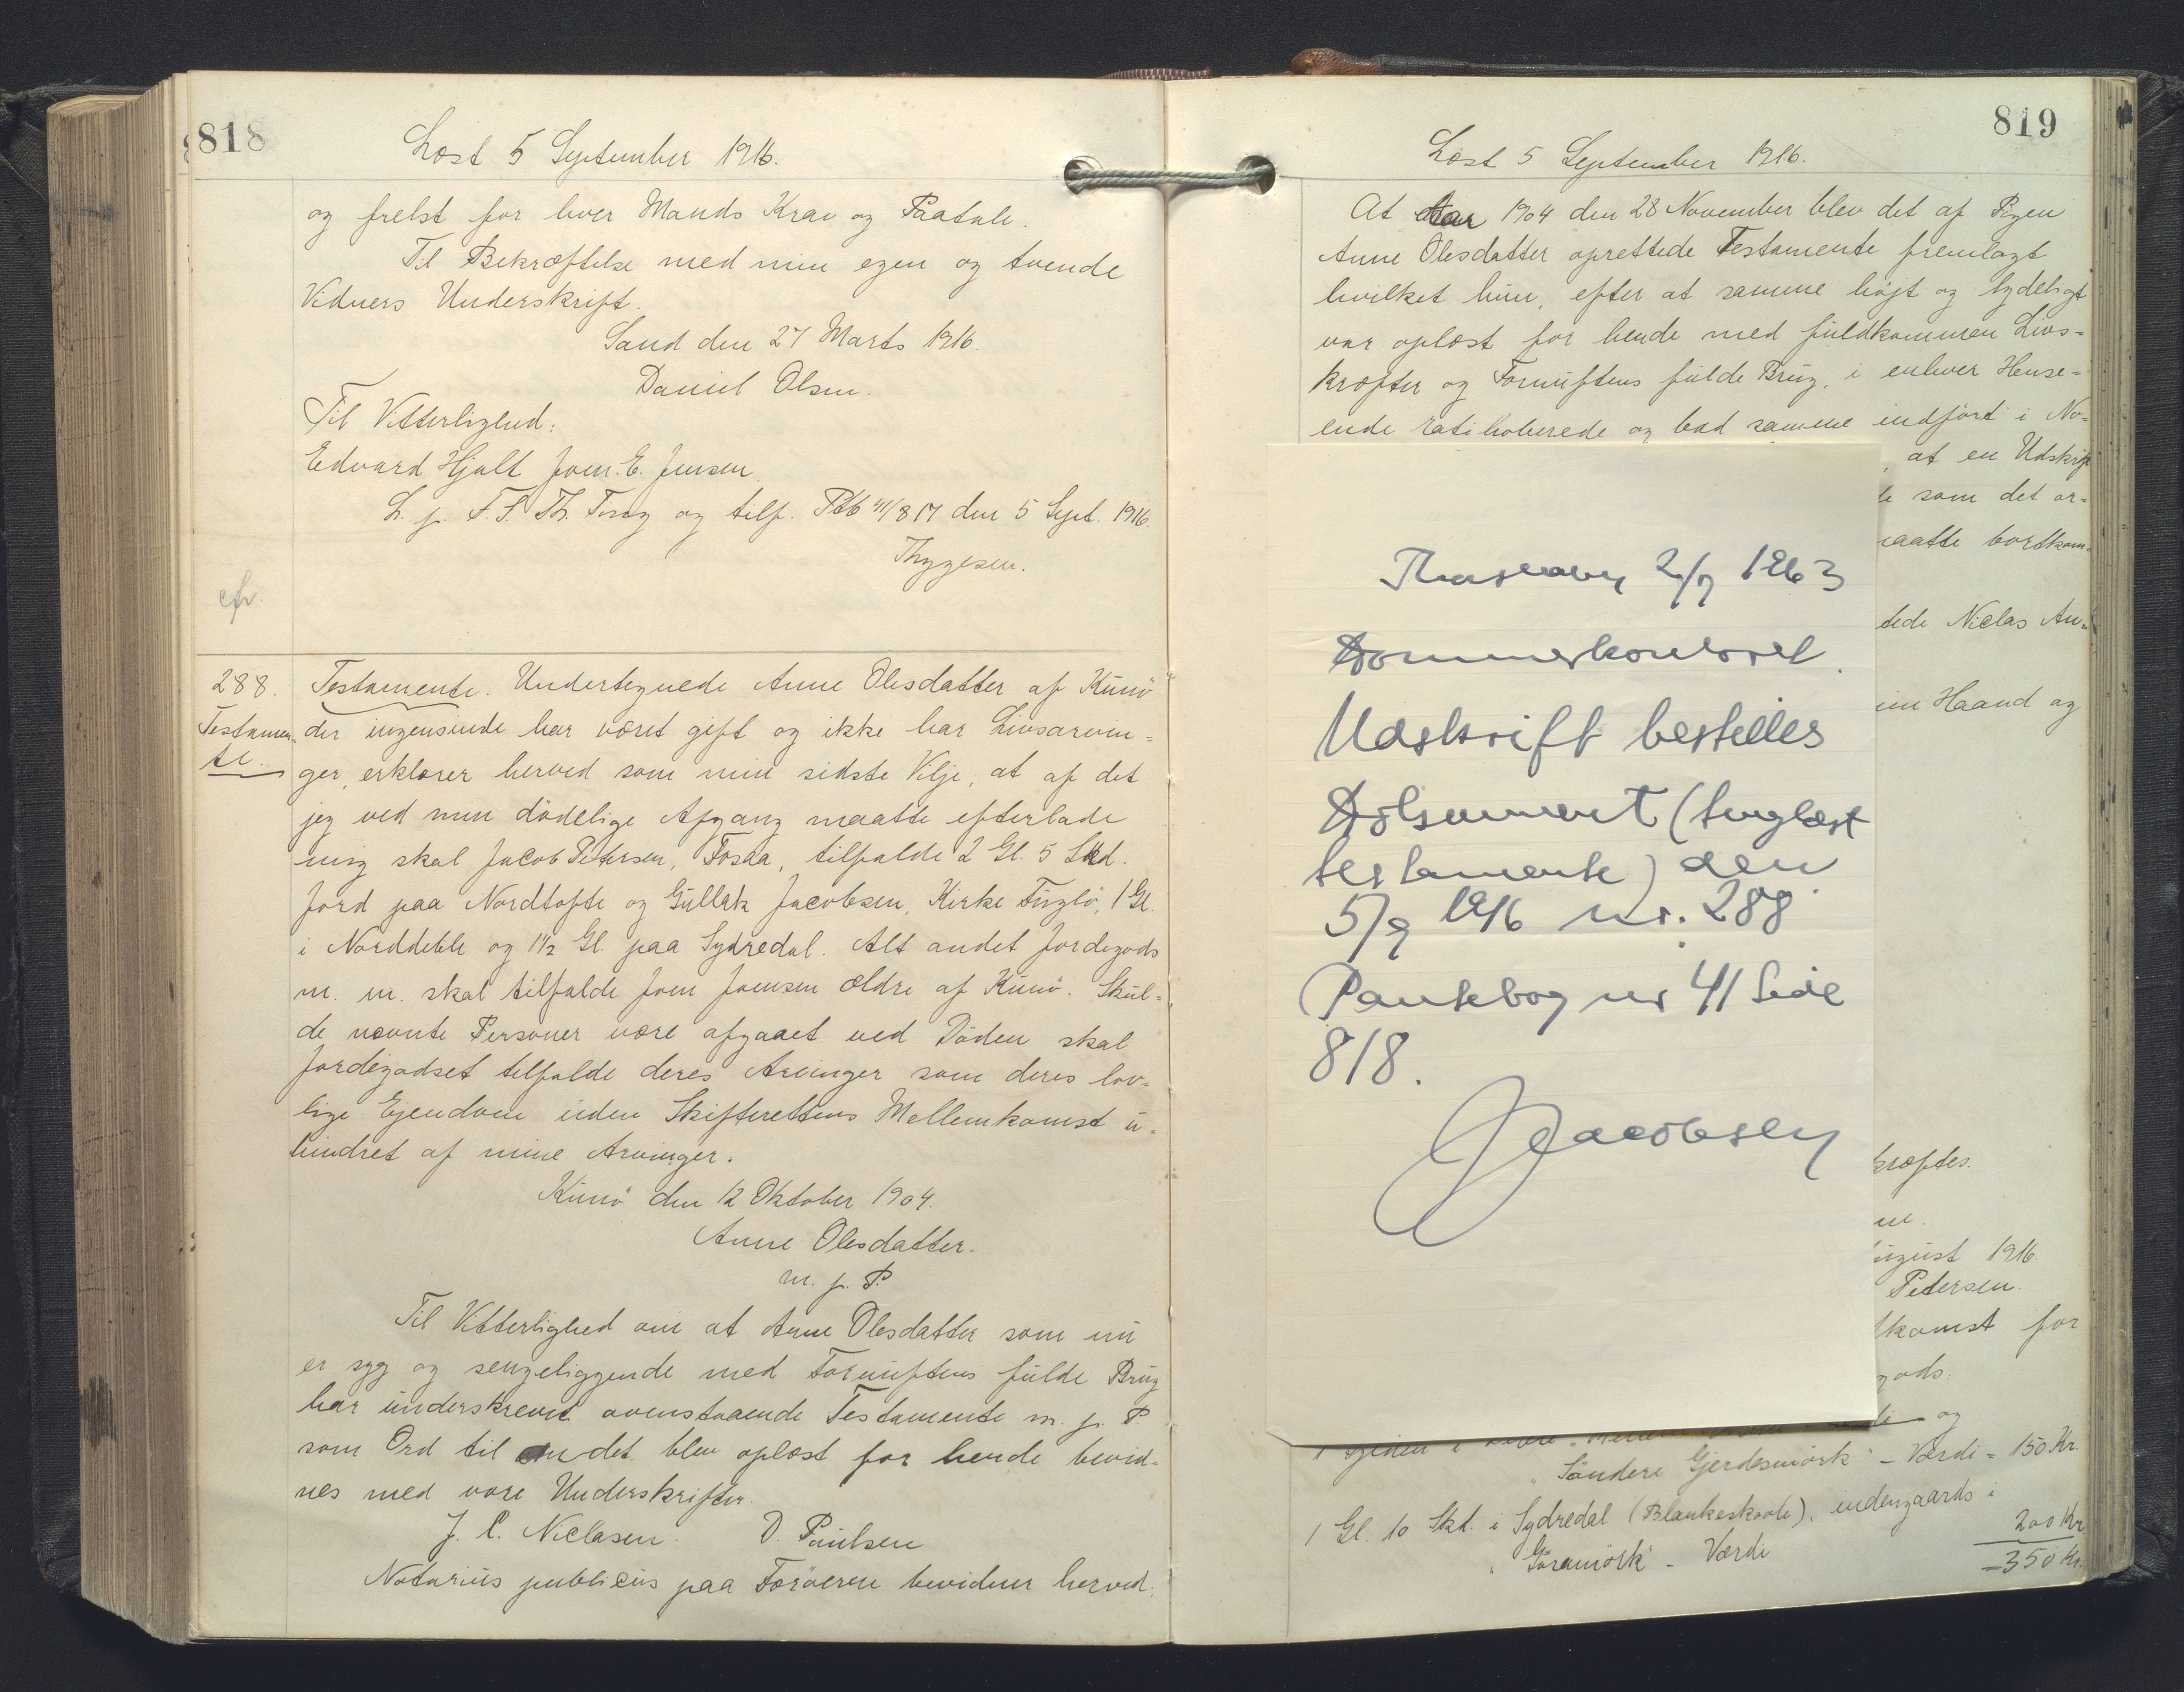 818
Læst 5 September 1916.
og frelst for hver Mands Krav og Paatale.
Til Bekræftelse med min egen og tvende
Vidners Underskrift.
Sand den 27 Marts 1916.
Daniel Olsen.
Til Vitterlighed:
Edvard Hjalt Joen. E. Jensen
L. p. F. S. Th. Torg og tilf. Ptb 41/817 den 5 Sept. 1916.
Thygesen.
cfr.
288.
Testamen-
te.
Testamente. Undertegnede Anne Olesdatter af Kunö
der ingensinde har været gift og ikke har Livsarvin-
ger, erklærer herved som min sidste Vilje, at af det
jeg ved min dödelige Afgang maatte efterlade
mig skal Jacob Petersen, Fossaa, tilfalde 2 Gl. 5 Skd.
Jord paa Nordtofte og Gullak Jacobsen, Kirke Fuglö, 1 Gl.
i Norddeble og 1 1/2 Gl. paa Sydredal. Alt andet Jordegods
m. m. skal tilfalde Joen Joensen ældre af Kunö. Skul-
de nævnte Personer være afgaaet ved Döden skal
Jordegodset tilfalde deres Arvinger som deres lov-
lige Ejendom uden Skifterettens Mellemkomst u-
hindret af mine Arvinger.
Kunö den 12 Oktober 1904.
Anne Olesdatter.
m. f. P.
Til Vitterlighed om at Anne Olesdatter som nu
er syg og sengeliggende med Fornuftens fulde Brug
har underskrevet ovenstaaende Testamente m. f. P.
som Ord til andet blev oplæst for hende bevid-
nes med vore Underskrifter.
J. C. Niclasen. D. Poulsen
Notarius publicus paa Færöerne bevidner herved:
819
Læst 5 September 1916.
At Aar 1904 den 28 November blev det af Pigen
Anne Olesdatter oprettede Testamente fremlagt
hvilket hun, efter at samme höjt og tydeligt
var oplæst for hende med fuldkommen Livs-
kræfter og Fornuftens fulde Brug, i enhver Hense-
ende ratihaberede og bad samme indfört i No-
, at en Udskrift
som det or-
maatte bortkom-
Niclas An-
min Haand og
Thorshavn 2/9 1963
Dommerkontoret.
Udskrift bestilles
Dokument (tinglæst
testamente) den
5/9 1916 nr. 288
Pantebog nr 41 Side
818.
Jacobsen
kræftes.
August 1916
Petersen.
komst for
gods.
og
"Söndere Gjerdesmörk" - Værdi = 150 Kr.
1 Gl. 10 Skd. i Sydredal (Blankeskaale), indengaards i
- Værdi
200 Kr
= 350 Kr.